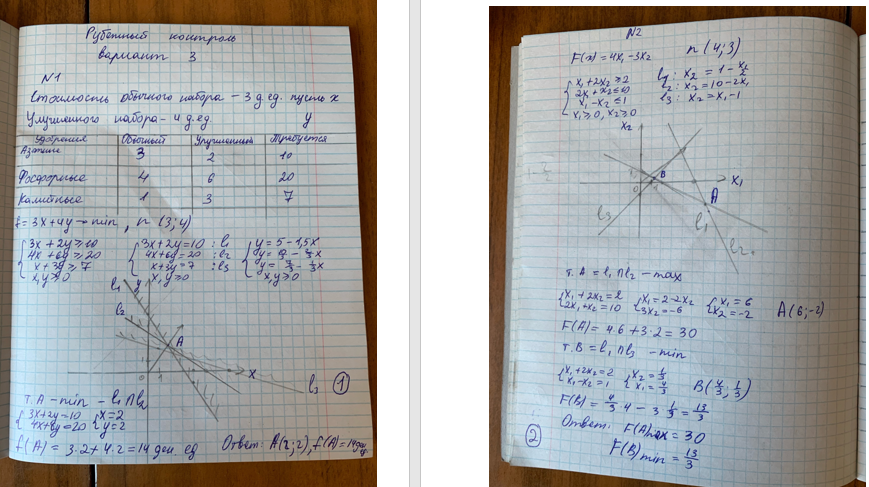 Рубежный контроль
вариант 3
N1
Стоимость обычного набора - 3 д.ед. пусть x
Улучшенного набора - 4 д.ед. y
Удобрения Обычный Улучшенный Требуется
Азотные 3 2 10
Фосфорные 4 6 20
Калийные 1 3 7
f = 3x+4y → min, n (3; 4)
3x+2y ≥ 10 3x+2y=10 : l₁ y = 5-1,5x
4x+6y ≥ 20 4x+6y=20 : l₂
x+3y ≥ 7 x+3y=7 : l₃ y = 7/3 - 1/3x
x,y ≥ 0 x,y ≥ 0 x,y ≥ 0
l₁ y
l₂
A
0 x
l₃
1
т. A - min - l₁∩l₂
3x+2y=10 x=2
4x+6y=20 y=2
f(A) = 3·2+4·2=14 ден. ед Ответ: A(2;2), f(A)=14 ден ед
N2
F(x) = 4x₁-3x₂ n (4; 3)
x₁+2x₂ ≥ 2 l₁: x₂ = 1 - x₂/2
2x₁+x₂ ≤ 10 l₂: x₂ = 10-2x₁
x₁-x₂ ≤ 1 l₃: x₂ = x₁-1
x₁ ≥ 0, x₂ ≥ 0
x₂
B x₁
0
A
l₃ l₁
l₂
т. A = l₁∩l₂ - max
x₁+2x₂=2 x₁=2-2x₂ x₁=6 A(6;-2)
2x₁+x₂=10 3x₂=-6 x₂=-2
F(A) = 4·6+3·2=30
т. B = l₁∩l₃ - min
x₁+2x₂=2 x₂=1/3 B(4/3; 1/3)
x₁-x₂=1 x₁=4/3
F(B) = 4/3·4-3·1/3=13/3
Ответ: F(A)max = 30
F(B)min = 13/3
2